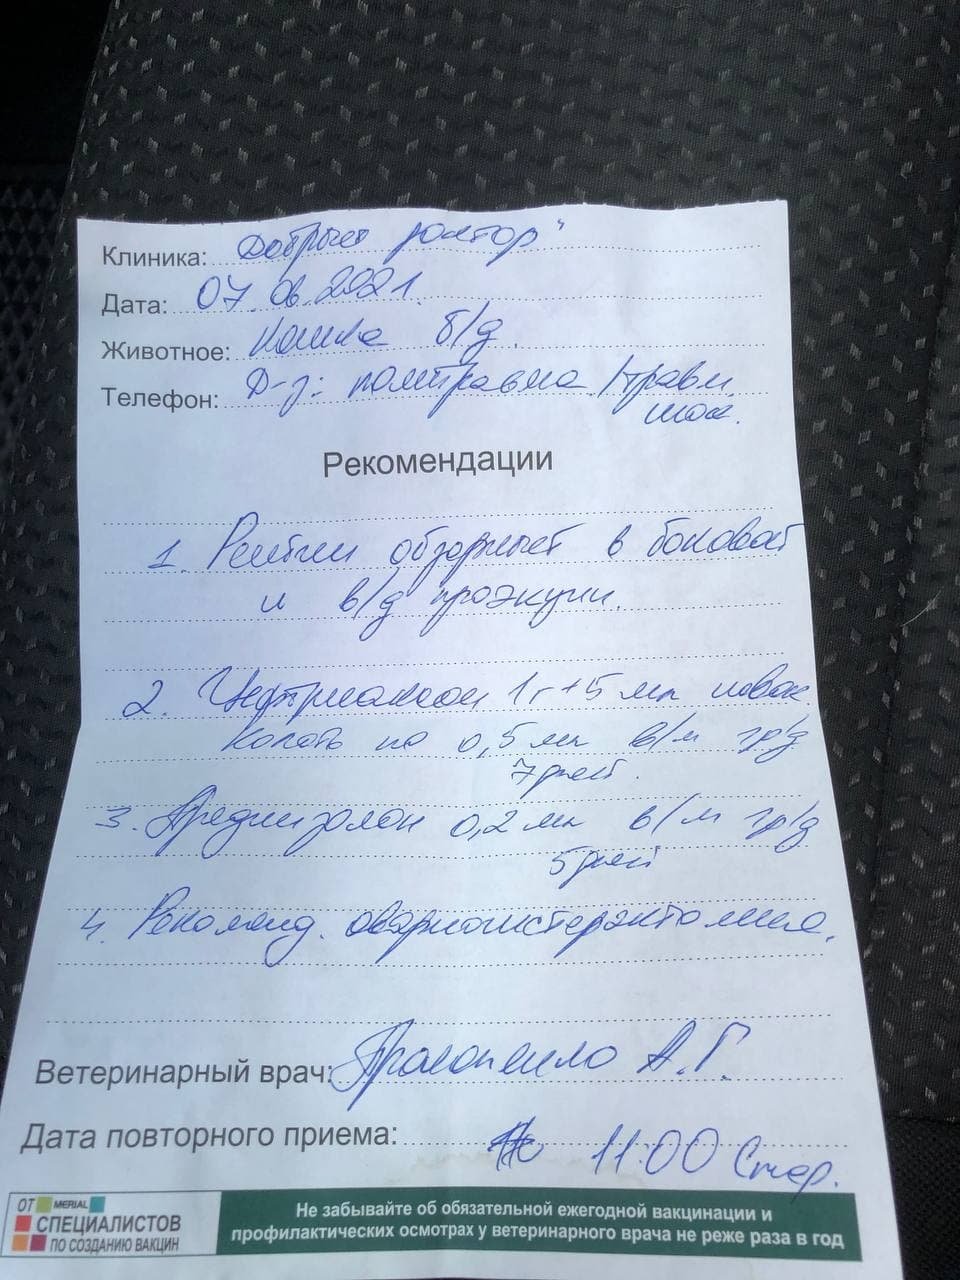 Клиника: Добрый доктор"
Дата: 07.06.2021.
Животное: Кошка б/д.
Телефон: Д-з: политравма /травм.
шок.
Рекомендации
1. Рентген обзорный в боковой
и в/д проэкции.
2. Цефтриаксон 1г+5 мл новок.
Колоть по 0,5 мл в/м 2р/д
7 дней.
3. Преднизолон 0,2 мл в/м 2р/д
5 дней
4. Рекоменд. овариогистерэктомия.
Ветеринарный врач: Прокопенко А.Г.
Дата повторного приема: 11:00 Стер.
ОТ MERIAL
СПЕЦИАЛИСТОВ
ПО СОЗДАНИЮ ВАКЦИН
Не забывайте об обязательной ежегодной вакцинации и
профилактических осмотрах у ветеринарного врача не реже раза в год